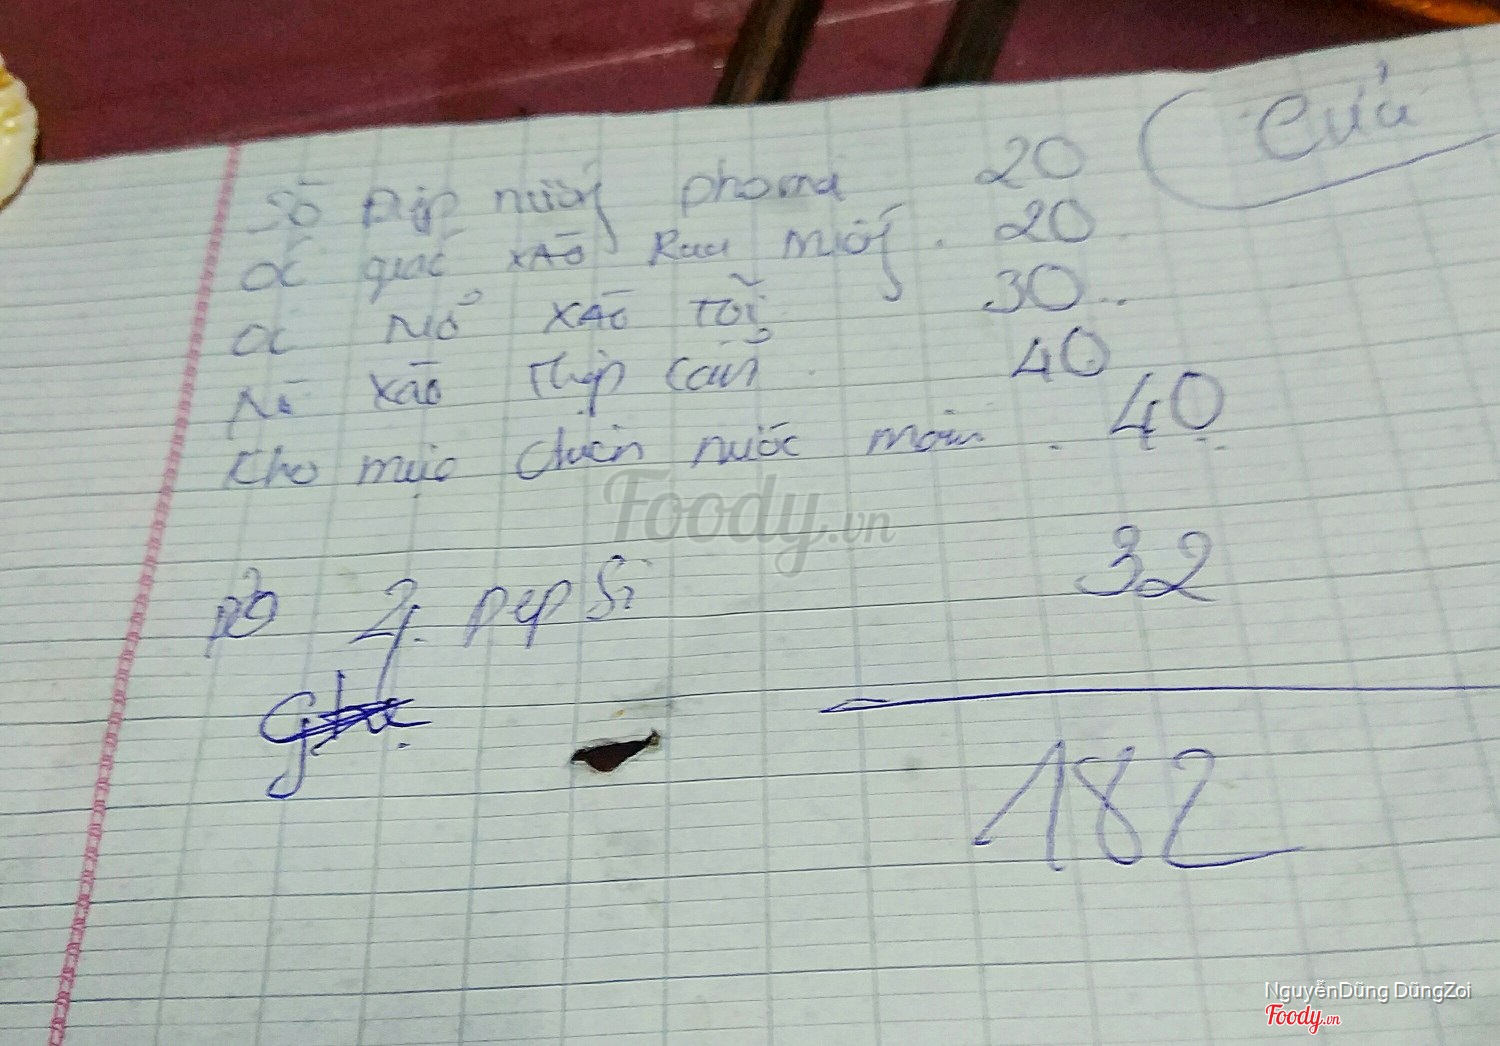 Cửa
Sò Điệp nướng phomai 20
ốc giác xào Rau muống. 20
ốc Mỡ xào Tỏi 30..
Mì xào Thập Cẩm. 40
Kho mực chiên nước mắm. 40
Foody.vn
4. pepSi 32
182
NguyễnDũng DũngZoi
Foody.vn